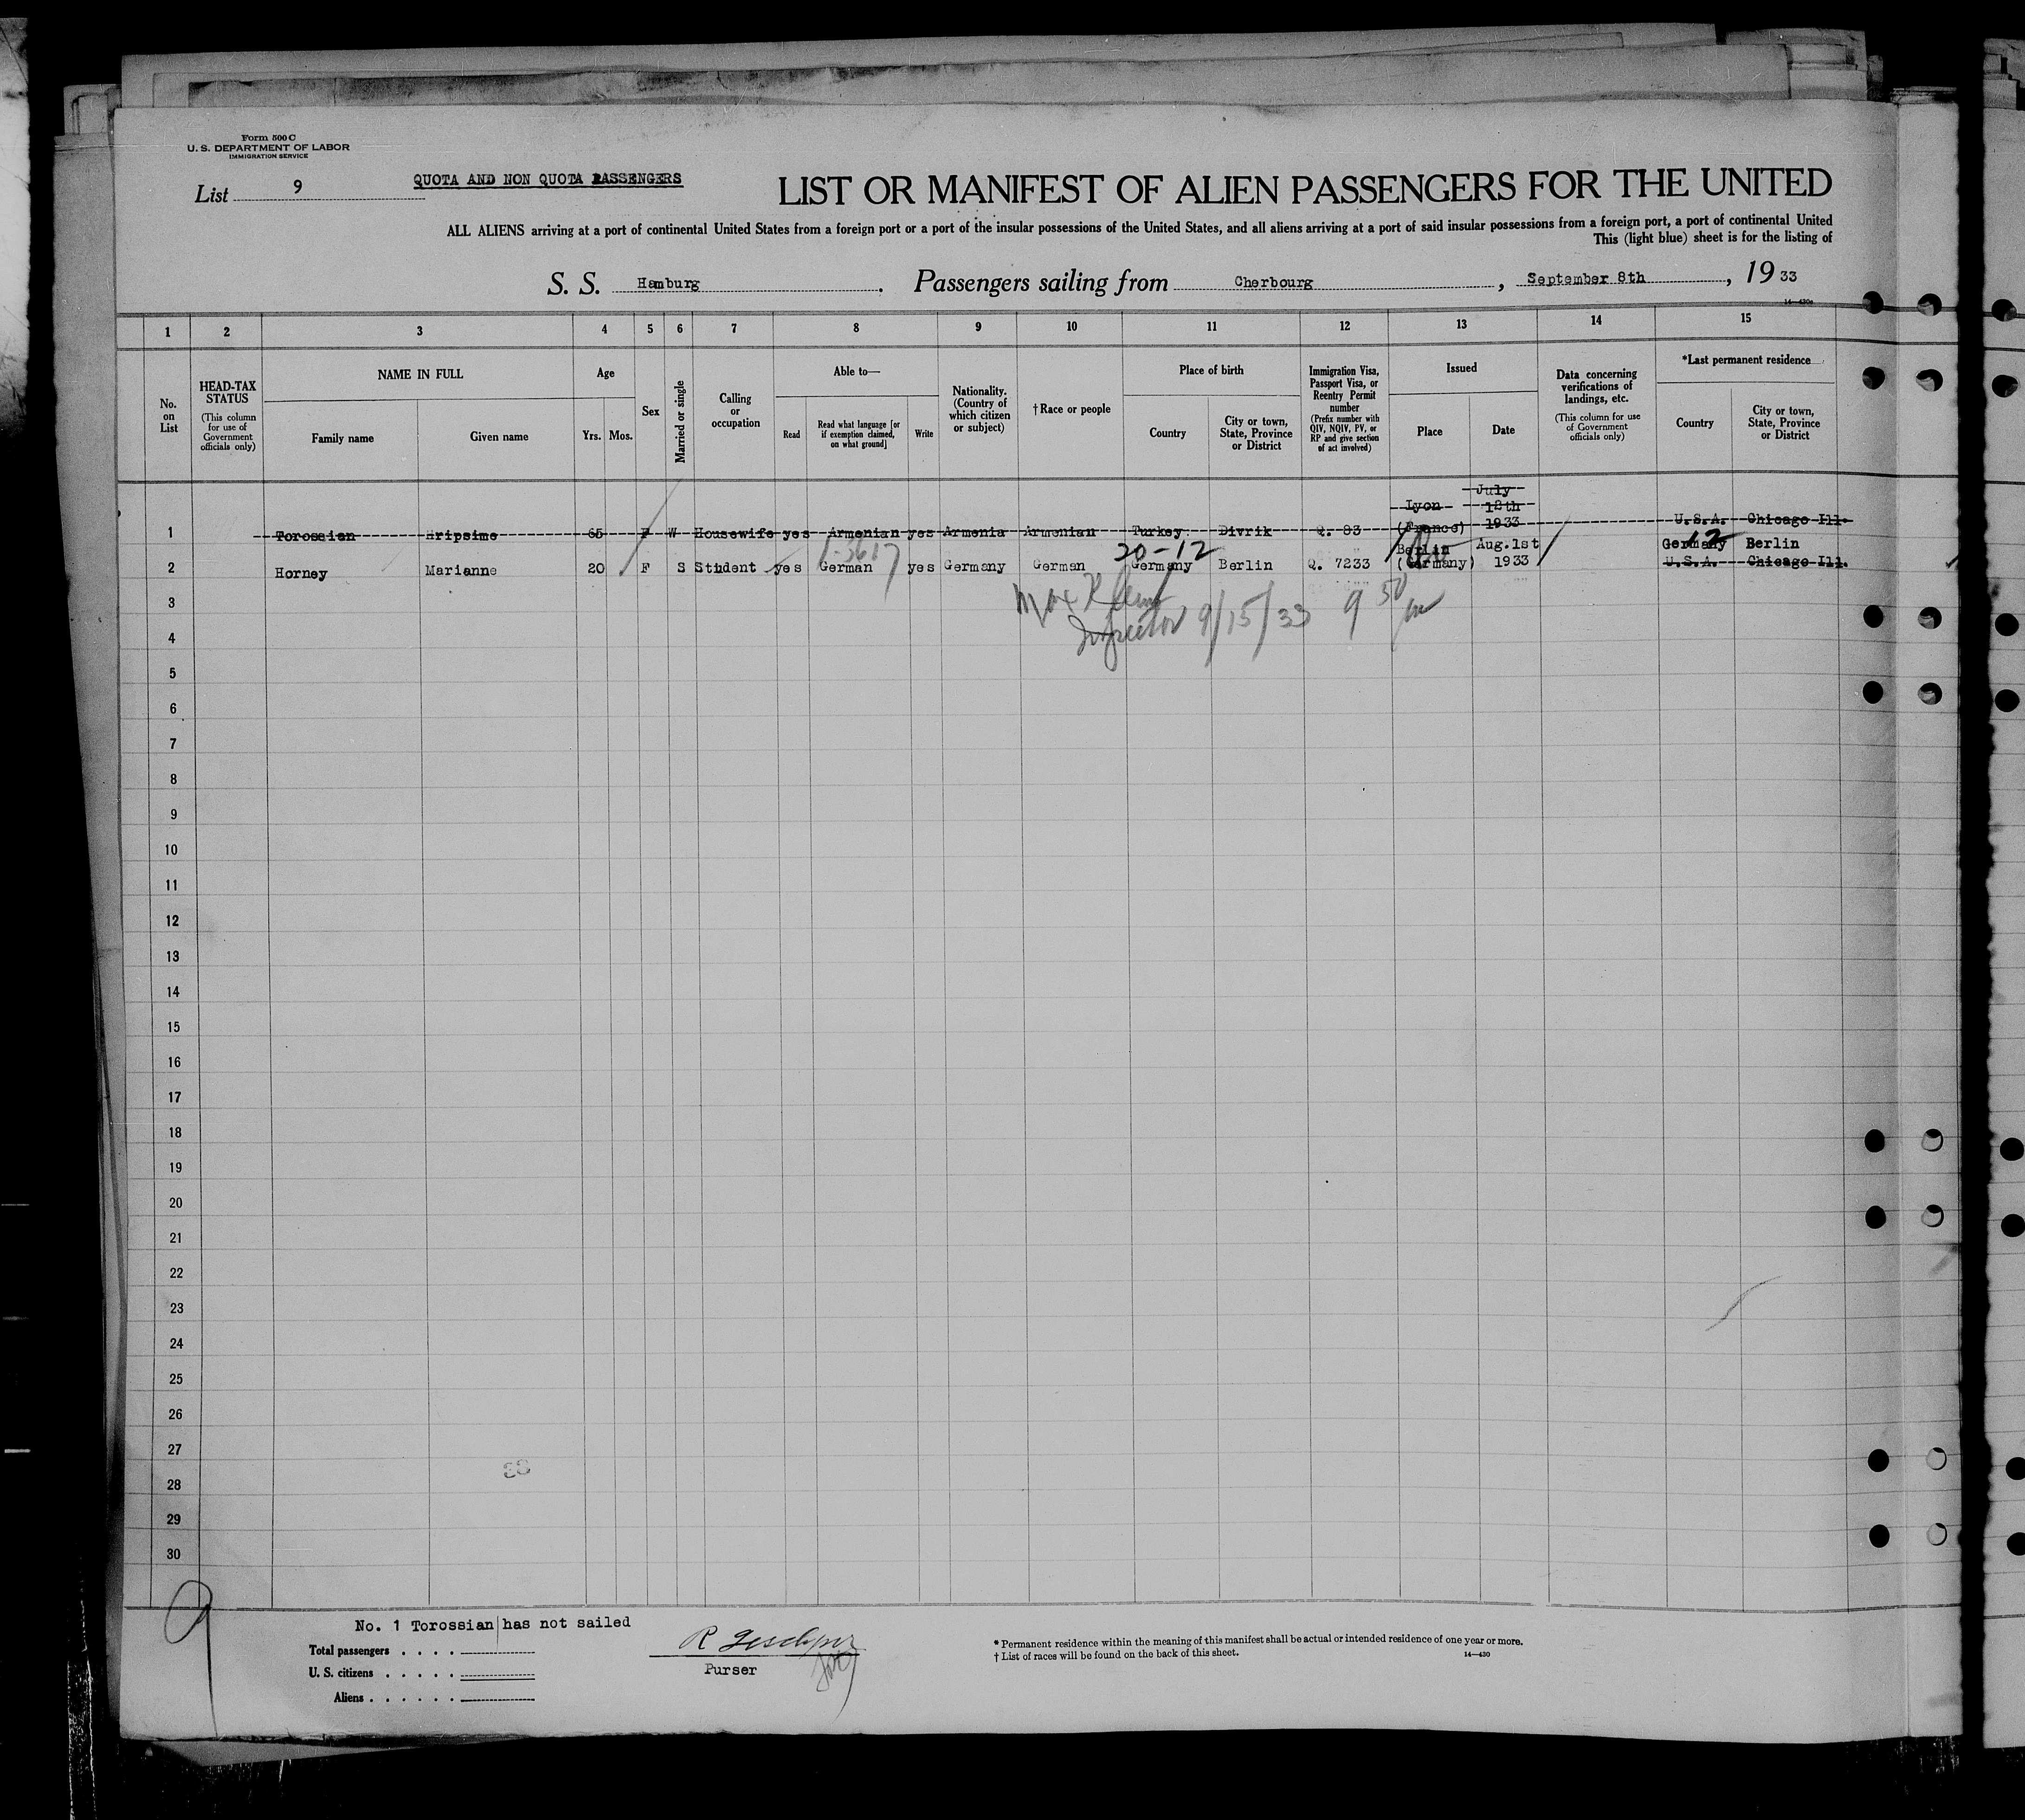 Form 500 C
U. S. DEPARTMENT OF LABOR
IMMIGRATION SERVICE
List 9
QUOTA AND NON QUOTA PASSENGERS
LIST OR MANIFEST OF ALIEN PASSENGERS FOR THE UNITED
ALL ALIENS arriving at a port of continental United States from a foreign port or a port of the insular possessions of the United States, and all aliens arriving at a port of said insular possessions from a foreign port, a port of continental United
This (light blue) sheet is for the listing of
S. S. Hamburg. Passengers sailing from Cherbourg, September 8th, 19 33
14—430a
1 2 3 4 5 6 7 8 9 10 11 12 13 14 15
No. on List
HEAD-TAX STATUS (This column for use of Government officials only)
NAME IN FULL
Family name
Given name
Age
Yrs. Mos.
Sex
Married or single
Calling or occupation
Able to—
Read
Read what language [or if exemption claimed, on what ground]
Write
Nationality. (Country of which citizen or subject)
† Race or people
Place of birth
Country
City or town, State, Province or District
Immigration Visa, Passport Visa, or Reentry Permit number (Prefix number with QIV, NQIV, PV, or RP and give section of act involved)
Issued
Place
Date
Data concerning verifications of landings, etc. (This column for use of Government officials only)
*Last permanent residence
Country
City or town, State, Province or District
1 Torossian Hripsime 65 F W Housewife yes Armenian yes Armenia Armenian Turkey Divrik Q. 83 Lyon (France) July 12th 1933 U.S.A. Chicago Ill.
20-12
12
2 Horney Marianne 20 F S Student yes German yes Germany German Germany Berlin Q. 7233 Berlin (Germany) Aug.1st 1933 Germany Berlin
U.S.A. Chicago Ill.
3
Inspector 9/15/33 9 50
4
5
6
7
8
9
10
11
12
13
14
15
16
17
18
19
20
21
22
23
24
25
26
27
28
29
30
No. 1 Torossian has not sailed
Total passengers
U. S. citizens
Aliens
Purser
* Permanent residence within the meaning of this manifest shall be actual or intended residence of one year or more.
† List of races will be found on the back of this sheet.
14—430